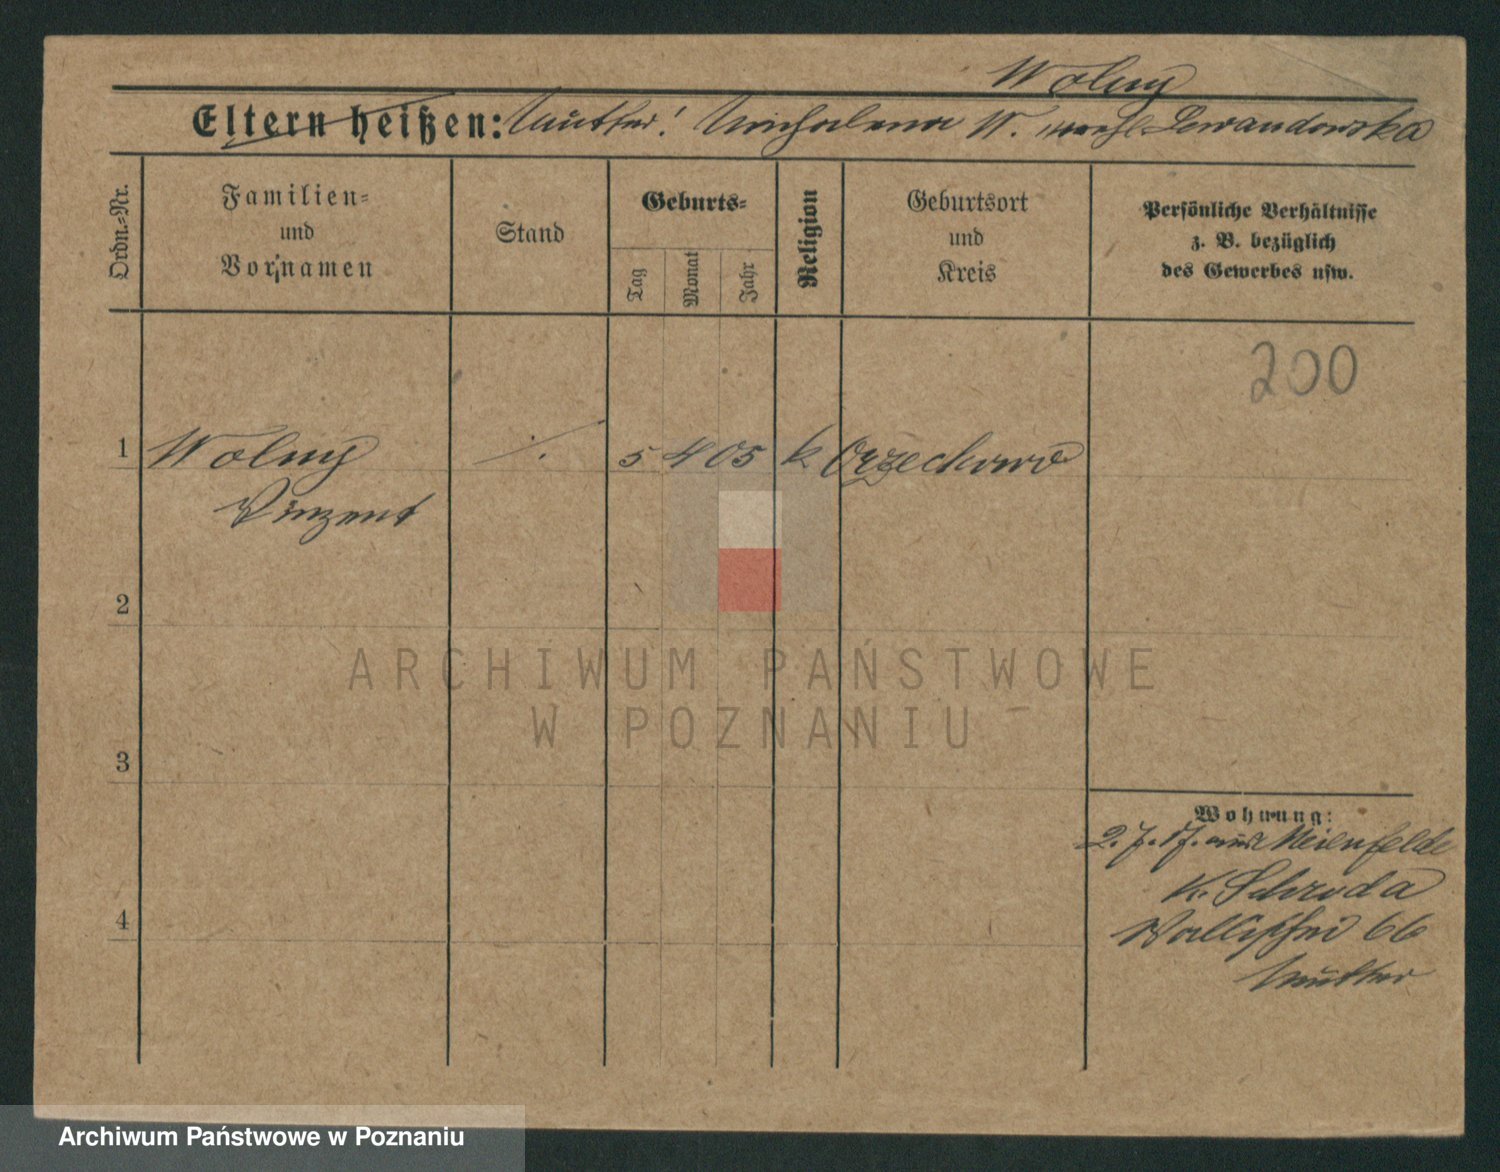 Wolny
Eltern heißen: Mutter! Michalena W. verehl. Lewandowska
Ordn.-Nr.
Familien-
und
Vornamen
Stand
Geburts-
Tag
Monat
Jahr
Religion
Geburtsort
und
Kreis
Persönliche Verhältnisse
z. B. bezüglich
des Gewerbes usw.
200
1 Wolny ·/. 5 4 05 k Orzechowo
Vinzent
2
ARCHIWUM PAŃSTWOWE
W POZNANIU
3
Wohnung:
2.7.17. aus Meienfelde
K. Schroda
Wallischei 66
Mutter
4
Archiwum Państwowe w Poznaniu